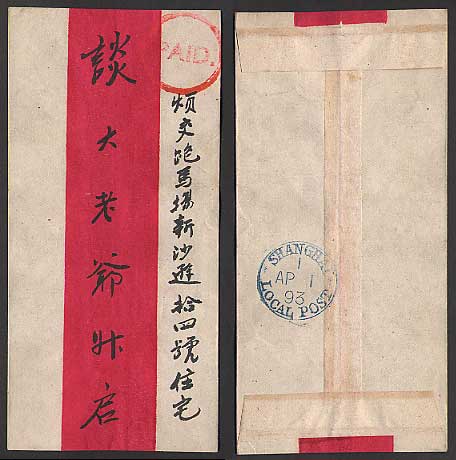 PAID.
煩交跑馬場新沙遜拾四號住宅
談大老爺升启
SHANGHAI
1
AP 1
93
LOCAL POST